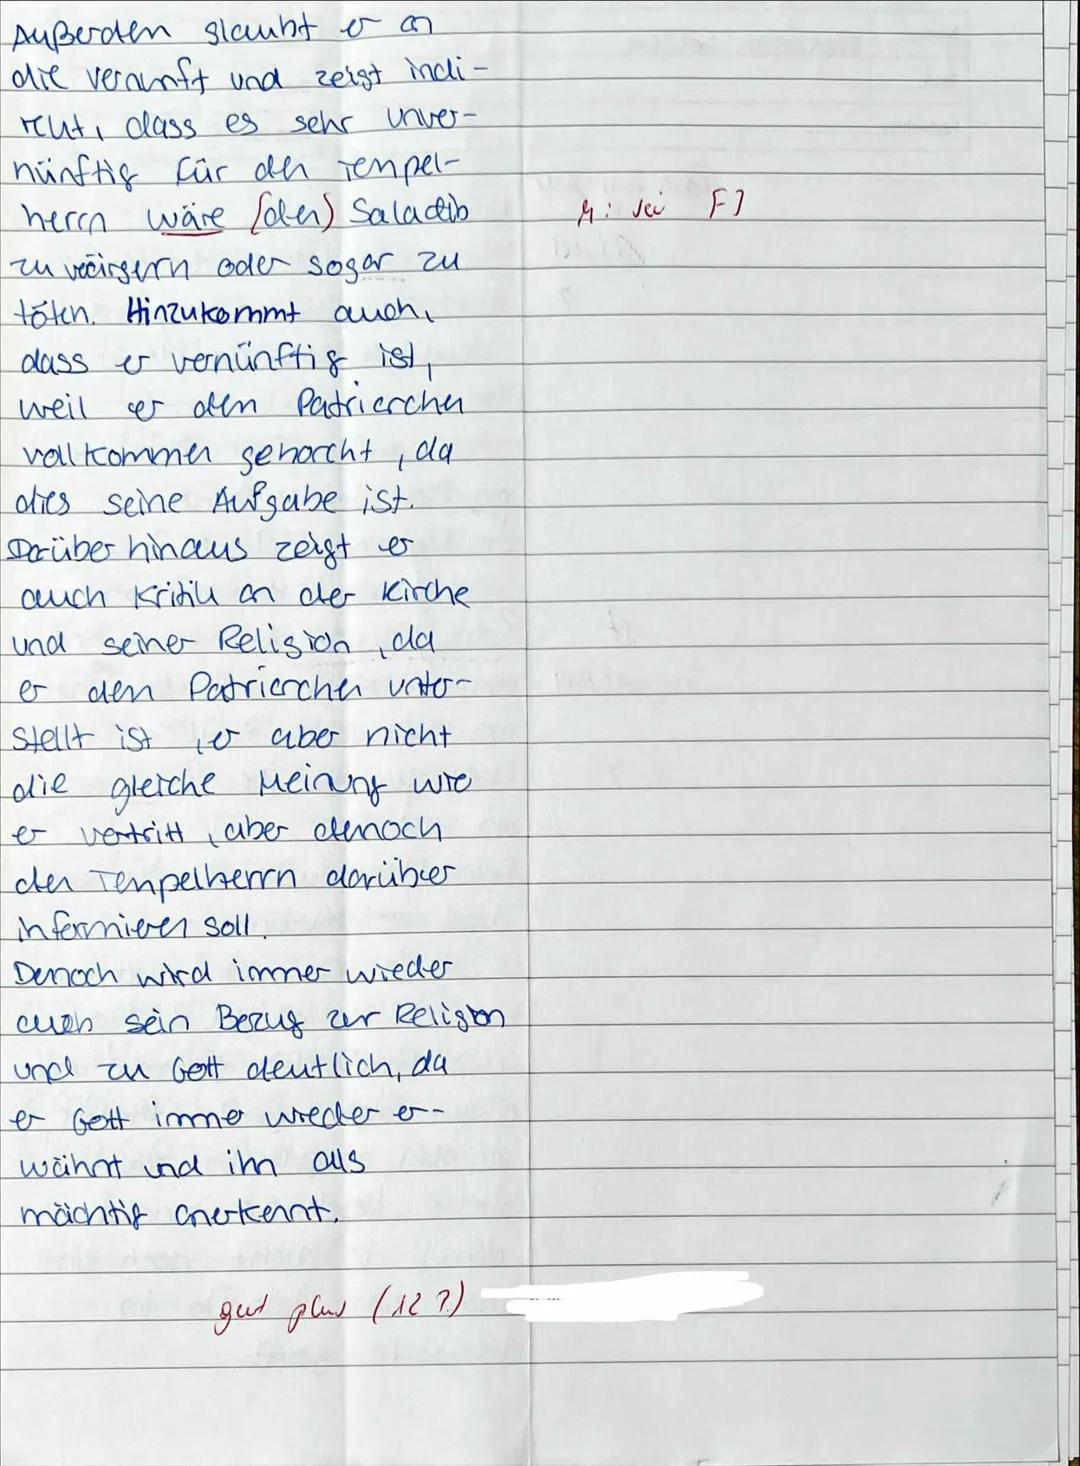 Außerdem glaubt er an
die Verunft und zeigt indi-
rekt, dass es sehr unver-
nünftig für den Tempel-
herrn wäre [den) Saladib
M: sei F]
zu verärgern oder sogar zu
töten. Hinzukommt auch,
dass er vernünftig ist,
weil er dem Patriarchen
vollkommen gehorcht, da
dies seine Aufgabe ist.
Darüber hinaus zeigt er
auch Kritik an der Kirche
und seiner Religion, da
er dem Patriarchen unter-
stellt ist, er aber nicht
die gleiche Meinung wie
er vertritt, aber dennoch
den Tempelherrn darüber
informieren soll.
Denoch wird immer wieder
auch sein Bezug zur Religion
und zu Gott deutlich, da
er Gott immer wieder er-
wähnt und ihn als
mächtig anerkennt.
gut plus (12 P.)